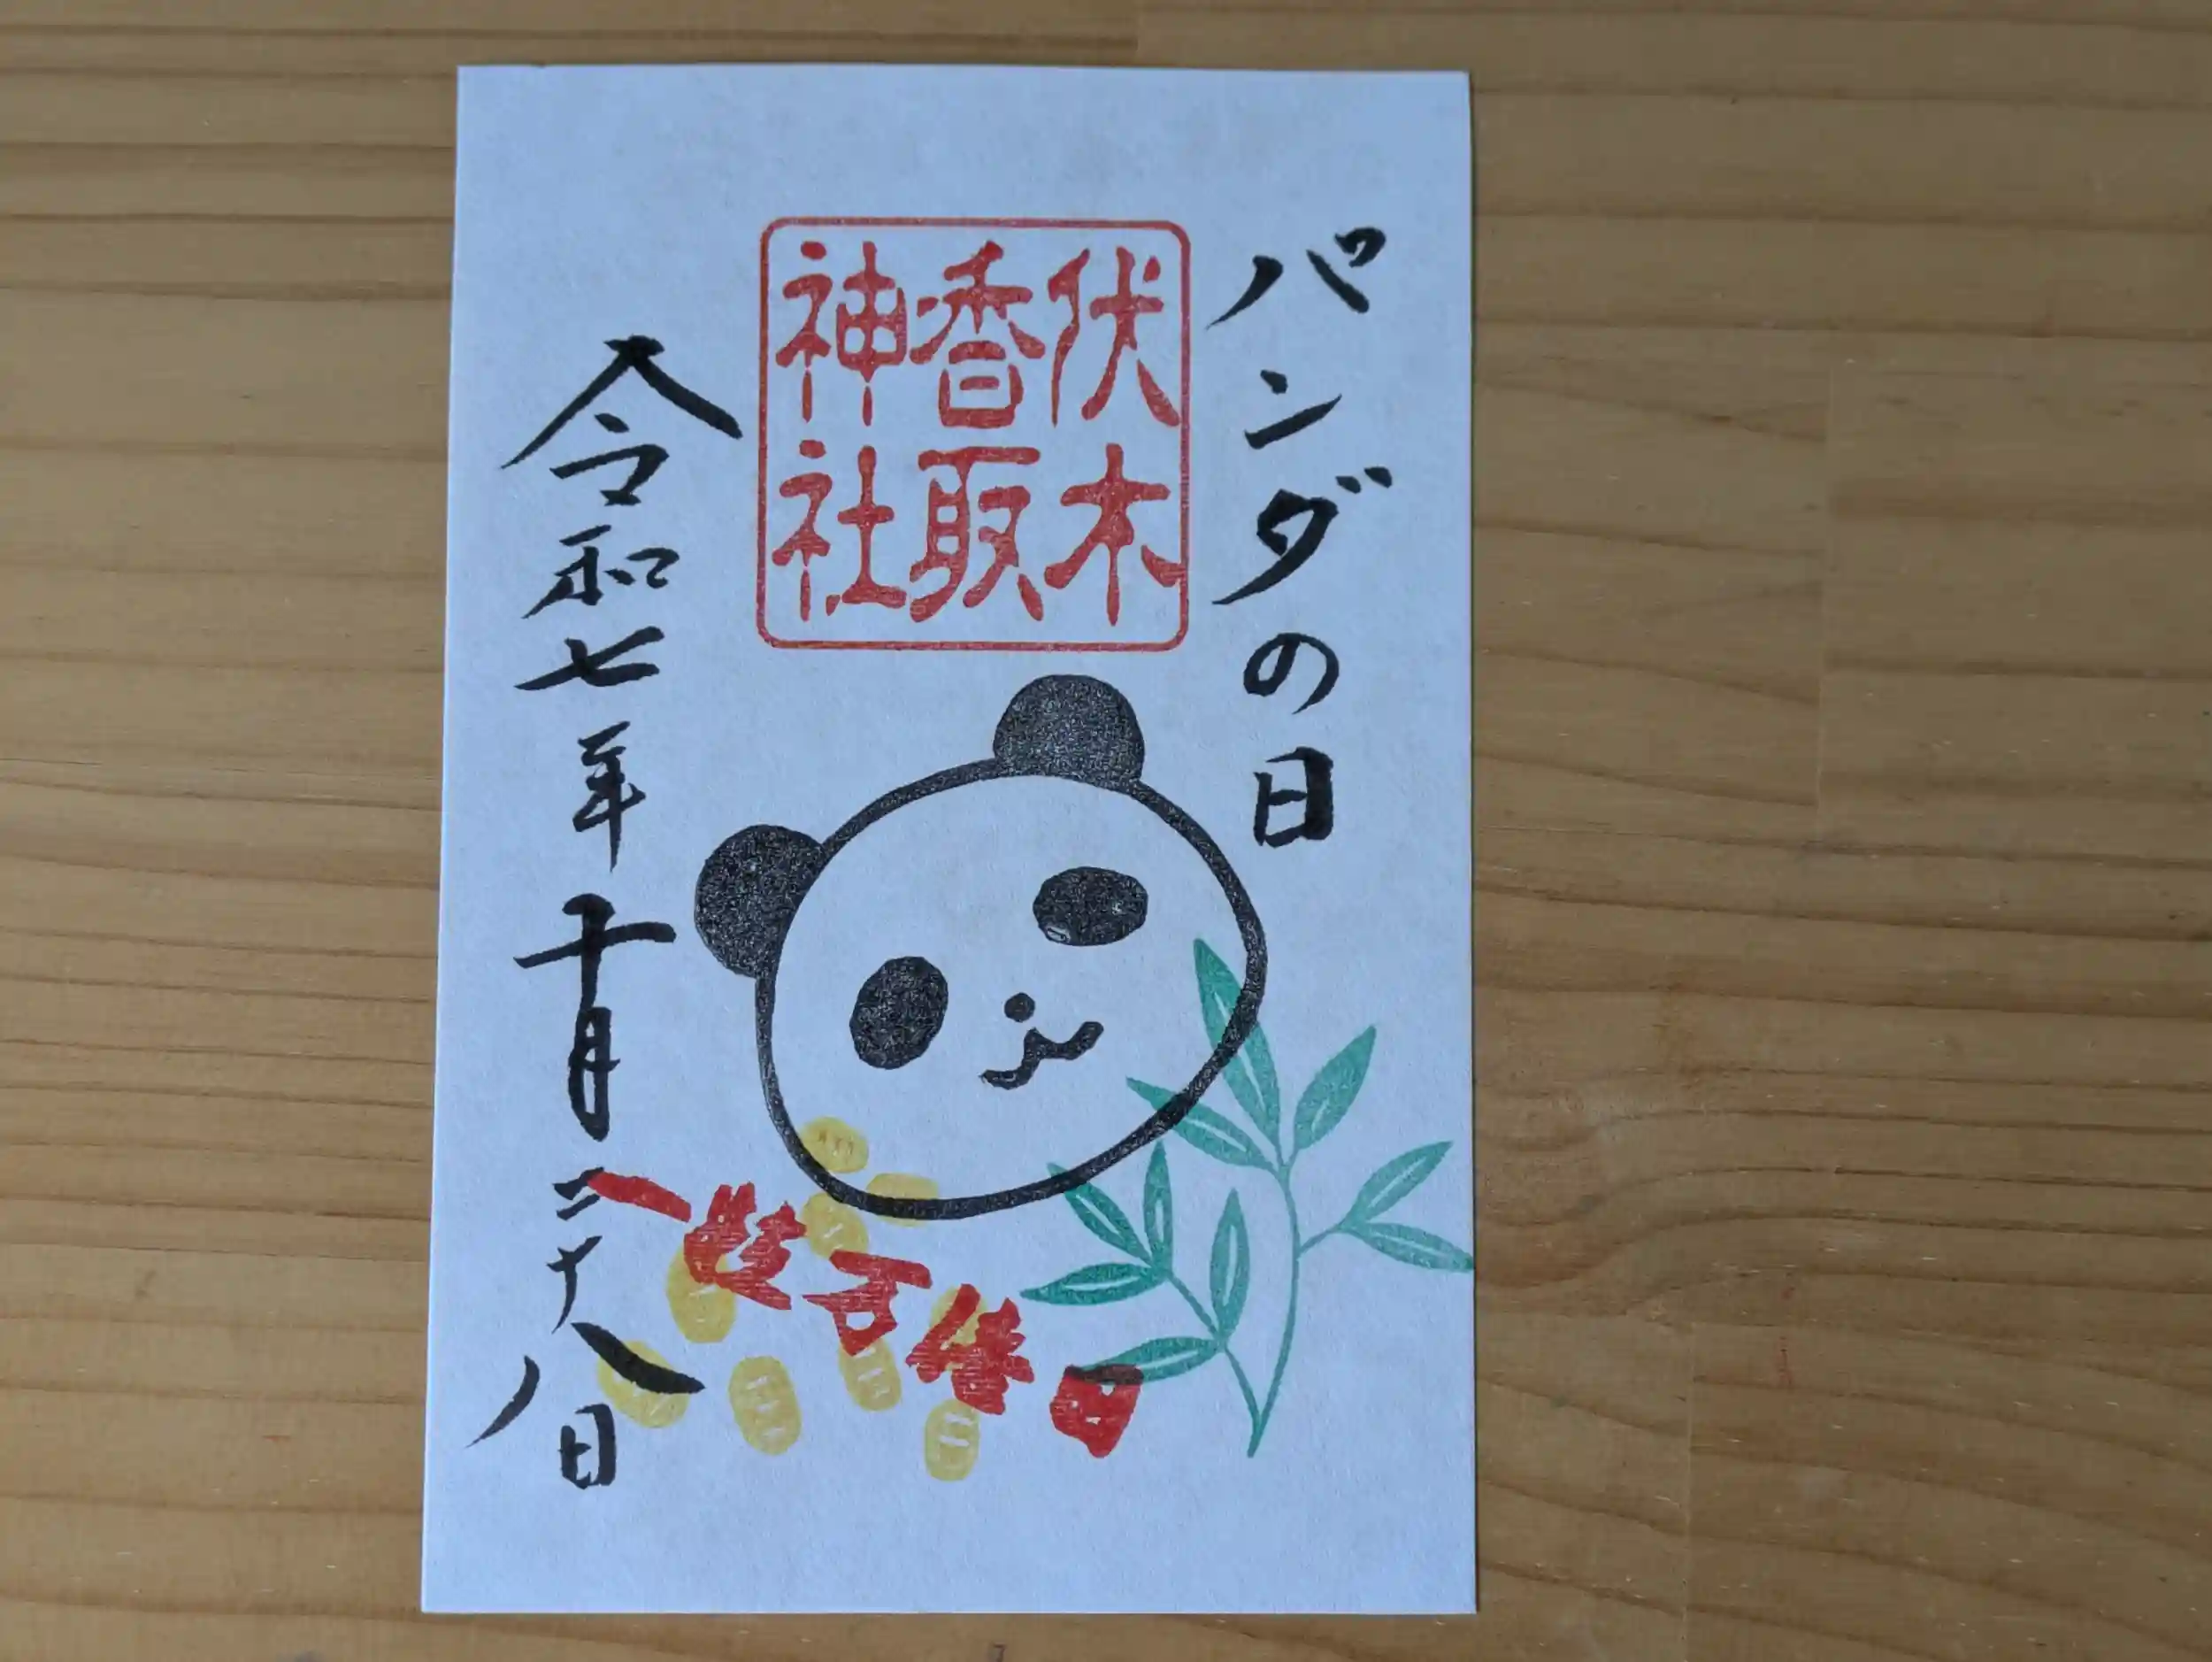 パンダの日
伏木
香取
神社
一粒万倍日
令和七年十月二十八日